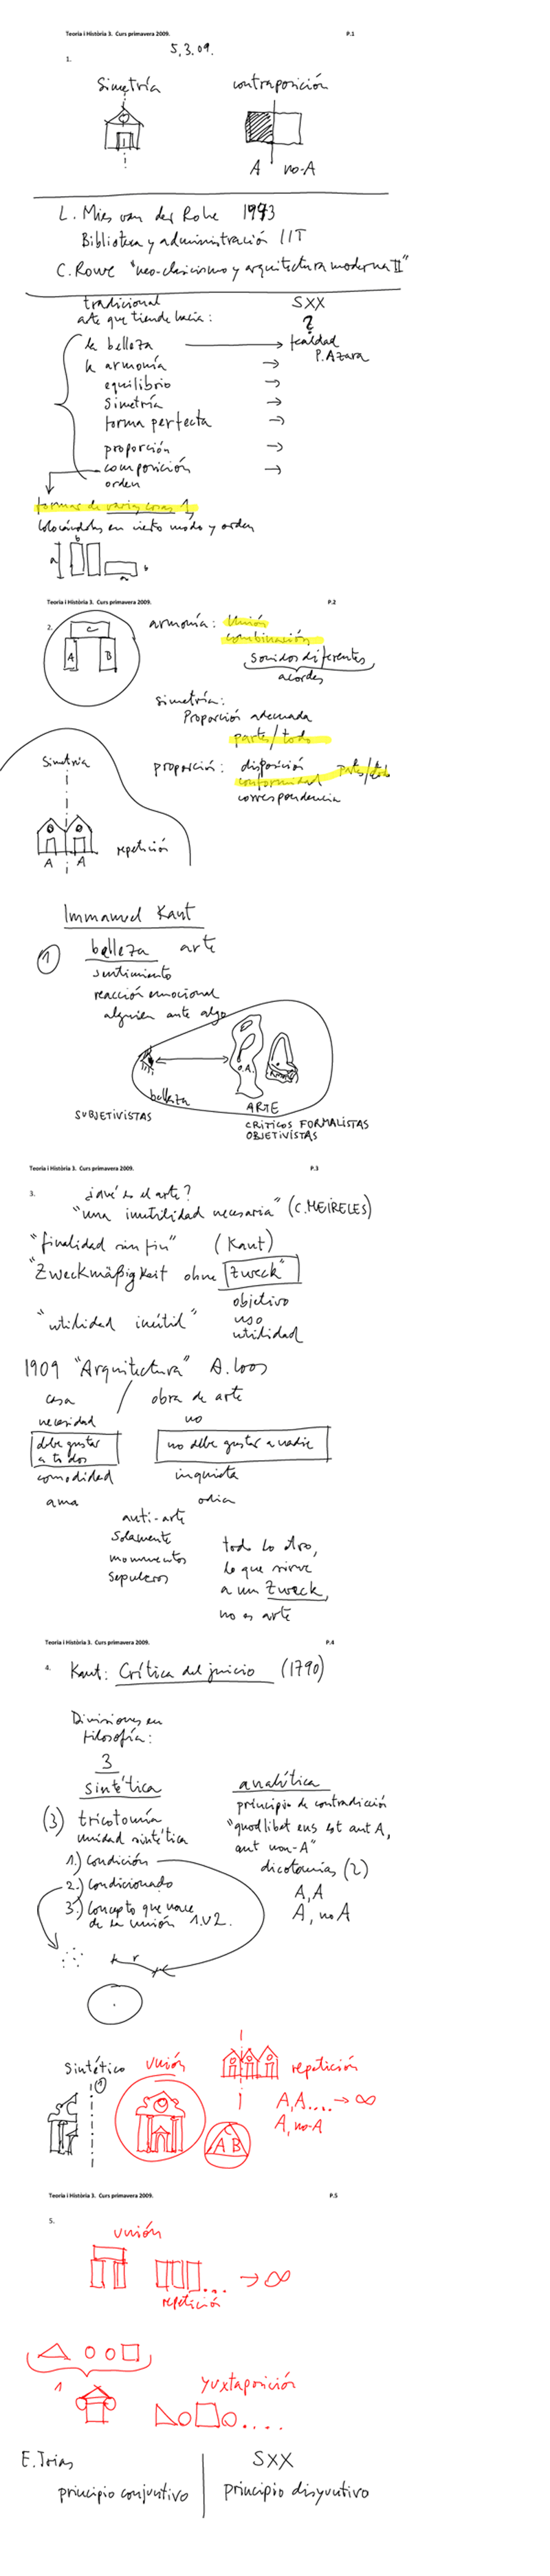 Teoria i Història 3. Curs primavera 2009. P.1
5.3.09.
1.
Simetría contraposición
A no-A
L. Mies van der Rohe 1943
Biblioteca y administración IIT
C. Rowe "neo-clasicismo y arquitectura moderna II"
tradicional SXX
arte que tiende hacia: ?
la belleza → fealdad
P. Azara
la armonía →
equilibrio →
simetría →
forma perfecta →
proporción →
composición →
orden
formar de varias cosas 1,
colocándolas en cierto modo y orden
a b
a b
Teoria i Història 3. Curs primavera 2009. P.2
2.
C
A B
armonía: Unión
combinación
sonidos diferentes
acordes
simetría:
Proporción adecuada
partes/todo
proporción: disposición
conformidad partes/todo
correspondencia
Simetría
A A
repetición
Immanuel Kant
1 belleza arte
sentimiento
reacción emocional
alguien ante algo
O.A.
belleza
ARTE
SUBJETIVISTAS
CRÍTICOS FORMALISTAS
OBJETIVISTAS
Teoria i Història 3. Curs primavera 2009. P.3
3.
¿qué es el arte?
"una inutilidad necesaria" (C. MEIRELES)
"finalidad sin fin" (Kant)
"Zweckmäßigkeit ohne Zweck"
objetivo
uso
utilidad
"utilidad inútil"
1909 "Arquitectura" A. Loos
casa / obra de arte
necesidad no
debe gustar a todos no debe gustar a nadie
comodidad inquieta
ama odia
anti-arte
Solamente
monumentos
sepulcros
todo lo otro,
lo que sirve
a un Zweck,
no es arte
Teoria i Història 3. Curs primavera 2009. P.4
4.
Kant: Crítica del juicio (1790)
Divisiones en
filosofía:
3
sintética
(3) tricotomía
unidad sintética
1.) condición
2.) condicionado
3.) concepto que nace
de la unión 1.U2.
analítica
principio de contradicción
"quodlibet ens est aut A,
aut non-A"
dicotomías (2)
A, A
A, no A
r
Sintético
1
unión
A B
repetición
A, A.... → ∞
A, no-A
Teoria i Història 3. Curs primavera 2009. P.5
5.
unión
... → ∞
repetición
1
yuxtaposición
....
E. Trias SXX
principio conjuntivo principio disyuntivo